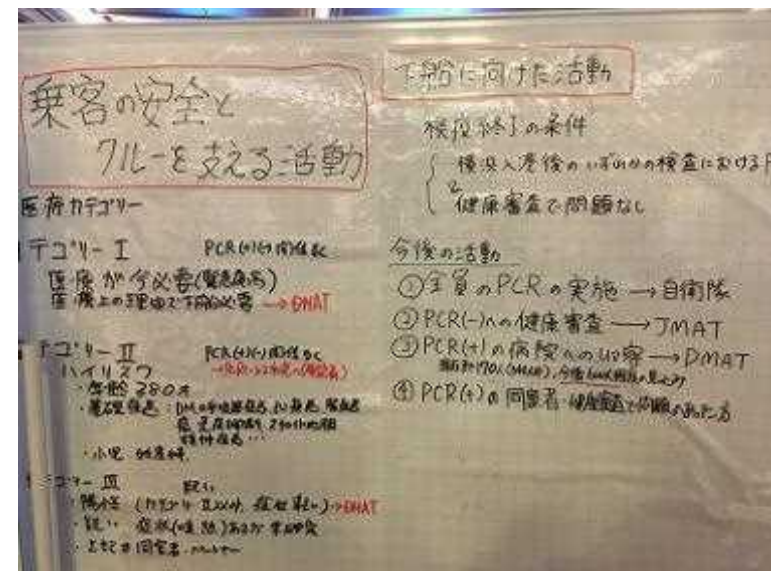 乗客の安全と
クルーを支える活動
医療カテゴリー
テゴリーI PCR(+)(-)関係なく
医療が今必要(緊急疾病)
医療上の理由で下船必要 →DMAT
テゴリーII PCR(+)(-)関係なく
ハイリスク
・年齢 ≧80才
・基礎疾患:DM
・小児 妊産婦
ゴリーIII 疑い
・陽性 (カテゴリーII以外, 症状軽い)→DMAT
・疑い 症状
同室者
下船に向けた活動
検疫終了の条件
横浜入港後のいずれかの検査における
&
健康審査で問題なし
今後の活動
①全員のPCRの実施 → 自衛隊
②PCR(-)への健康審査 → JMAT
③PCR(+)の病院への → DMAT
④PCR(+)の同室者・健康審査で問題のあった方